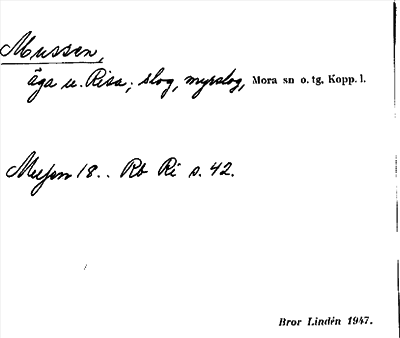 Mussen,
äga u. Risa; slog, myrslog, Mora sn o. tg, Kopp. l.
18.. Rb Ri s. 42.
Bror Lindén 1947.